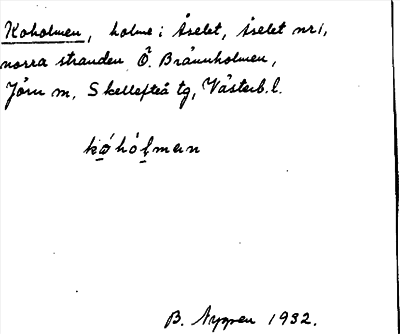 Koholmen, holme i Åselet, Åselet nr 1,
norra stranden Ö. Brännholmen,
Jörn sn, Skellefteå tg, Västerb. l.
kóhólmen
B. Nygren 1932.